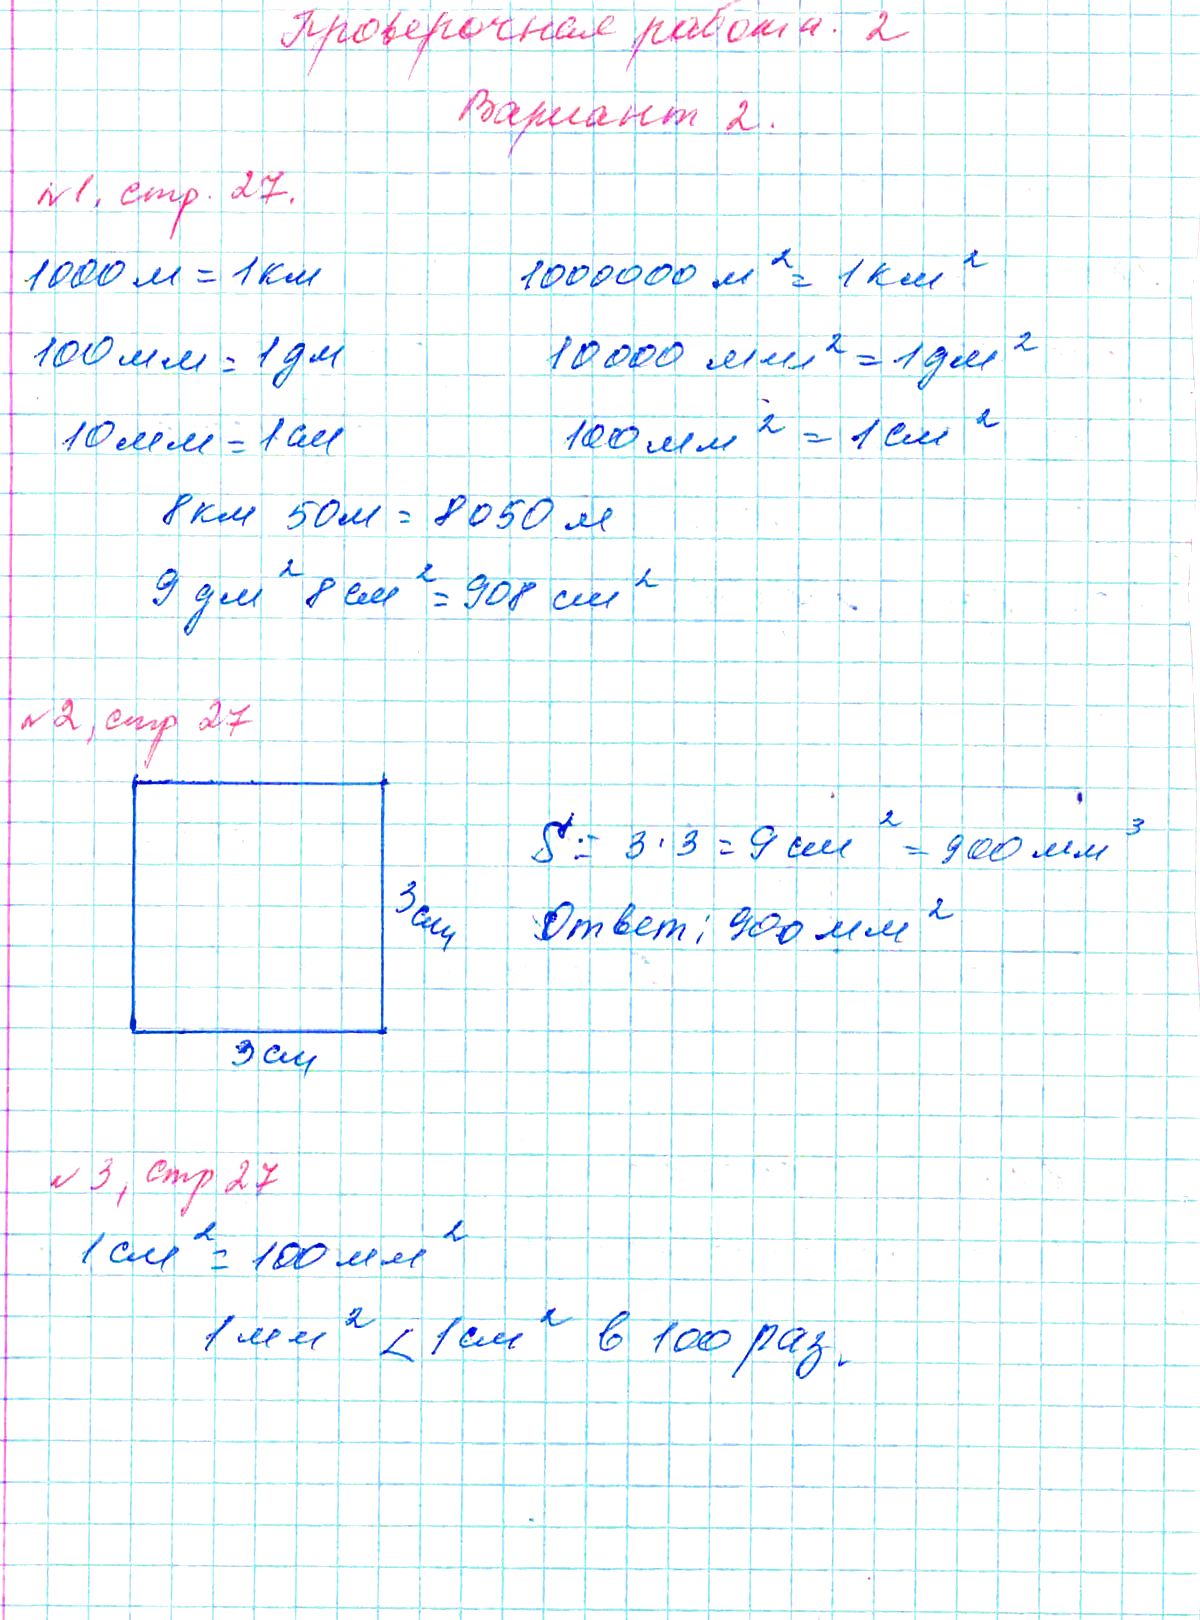 Проверочная работа. 2
Вариант 2.
№1, стр. 27.
1000 м = 1 км 1000000 м² = 1 км²
100 мм = 1 дм 10000 мм² = 1 дм²
10 мм = 1 см 100 мм² = 1 см²
8 км 50 м = 8050 м
9 дм² 8 см² = 908 см²
№2, стр 27
S = 3 · 3 = 9 см² = 900 мм³
3 см
Ответ; 900 мм²
3 см
№3, стр 27
1 см² = 100 мм²
1 мм² < 1 см² в 100 раз.